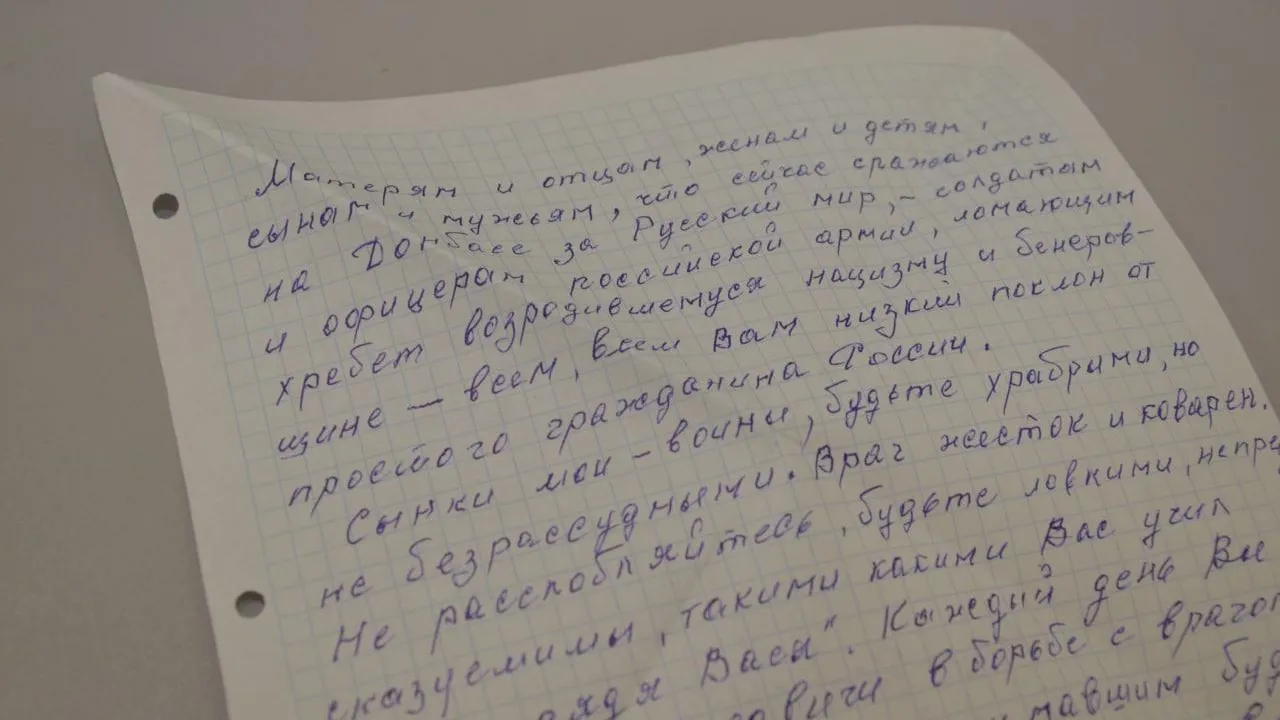 Матерям и отцам, женам и детям,
сынам и мужьям, что сейчас сражаются
на Донбассе за Русский мир, – солдатам
и офицерам российской армии, ломающим
хребет возродившемуся нацизму и бенеров-
щине — всем, всем Вам низкий поклон от
простого гражданина России.
Сынки мои – воины, будьте храбрими, но
не безрассудными. Враг жесток и коварен.
Не расслобляйтесь, будьте ловкими, непред
сказуемимы, такими какими Вас учил
дядя Васы". Каждый день Вы
в борьбе с врагом
буд